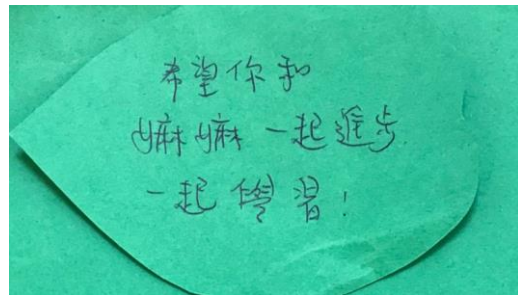 希望你和
嫲嫲一起進步
一起學習！